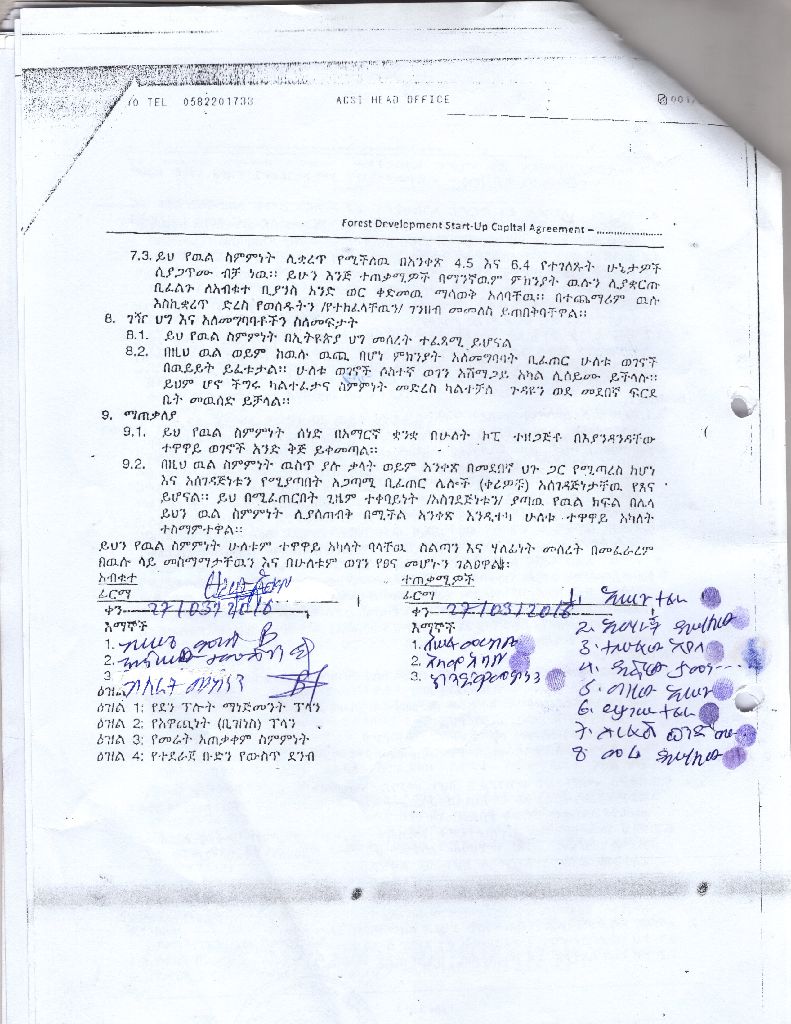 TEL 0582201733 ACSI HEAD OFFICE
Forest Development Start-Up Capital Agreement – ......................
7.3. ይህ የዉል ስምምነት ሊቋረጥ የሚችለዉ በአንቀጽ 4.5 እና 6.4 የተገለጹት ሁኔታዎች
ሲያጋጥሙ ብቻ ነዉ፡፡ ይሁን እንጅ ተጠቃሚዎች በማንኛዉም ምክንያት ዉሉን ሲያቋርጡ
ቢፈልጉ ለአብቁተ ቢያንስ አንድ ወር ቀድመዉ ማሳወቅ አለባቸዉ፡፡ በተጨማሪም ዉሉ
እስኪቋረጥ ድረስ የወሰዱትን /የተከፈላቸዉን/ ገንዘብ መመለስ ይጠበቅባቸዋል፡፡
8. ገዥ ህግ እና አለመግባባቶችን ስለመፍታት
8.1. ይህ የዉል ስምምነት በኢትዮጵያ ህግ መሰረት ተፈጻሚ ይሆናል
8.2. በዚህ ዉል ወይም ከዉሉ ዉጪ በሆነ ምክንያት አለመግባባት ቢፈጠር ሁለቱ ወገኖች
በዉይይት ይፈቱታል፡፡ ሁለቱ ወገኖች ሶስተኛ ወገን አሸማጋይ አካል ሊሰይሙ ይችላሉ፡፡
ይህም ሆኖ ችግሩ ካልተፈታና ስምምነት መድረስ ካልተቻለ ጉዳዩን ወደ መደበኛ ፍርደ
ቤት መዉሰድ ይቻላል፡፡
9. ማጠቃለያ
9.1. ይህ የዉል ስምምነት ሰነድ በአማርኛ ቋንቋ በሁለት ኮፒ ተዘጋጅቶ በእያንዳንዳቸው
ተዋዋይ ወገኖች አንድ ቅጅ ይቀመጣል፡፡
9.2. በዚህ ዉል ስምምነት ዉስጥ ያሉ ቃላት ወይም አንቀጽ በመደበኛ ህጉ ጋር የሚጣረስ ከሆነ
እና አስገዳጅነቱን የሚያጣበት አጋጣሚ ቢፈጠር ሌሎች (ቀሪዎቹ) አስገዳጅነታቸዉ የጸና
ይሆናል፡፡ ይህ በሚፈጠርበት ጊዜም ተቀባይነት /አስገደጅነቱን/ ያጣዉ የዉል ክፍል በሌላ
ይህን ዉል ስምምነት ሊያስጠብቅ በሚችል አንቀጽ እንዲተካ ሁለቱ ተዋዋይ አካለት
ተስማምተዋል፡፡
ይህን የዉል ስምምነት ሁለቱም ተዋዋይ አካላት ባላቸዉ ስልጣን እና ሃለፊነት መሰረት በመፈራረም
በዉሉ ላይ መስማማታቸዉን እና በሁለቱም ወገን የፀና መሆኑን ገልፀዋል፡
አብቁተ ተጠቃሚዎች
ፊርማ ፊርማ
ቀን 27/03/2016 ቀን 27/03/2016
እማኞች እማኞች
1. 1.
2. 2.
3. 3.
ዕዝል 1: የደን ፕሉት ማኔጅመንት ፕላን
ዕዝል 2: የአዋጪነት (ቢዝነስ) ፕላን
ዕዝል 3: የመሬት አጠቃቀም ስምምነት
ዕዝል 4: የተደራጀ ቡድን የውስጥ ደንብ